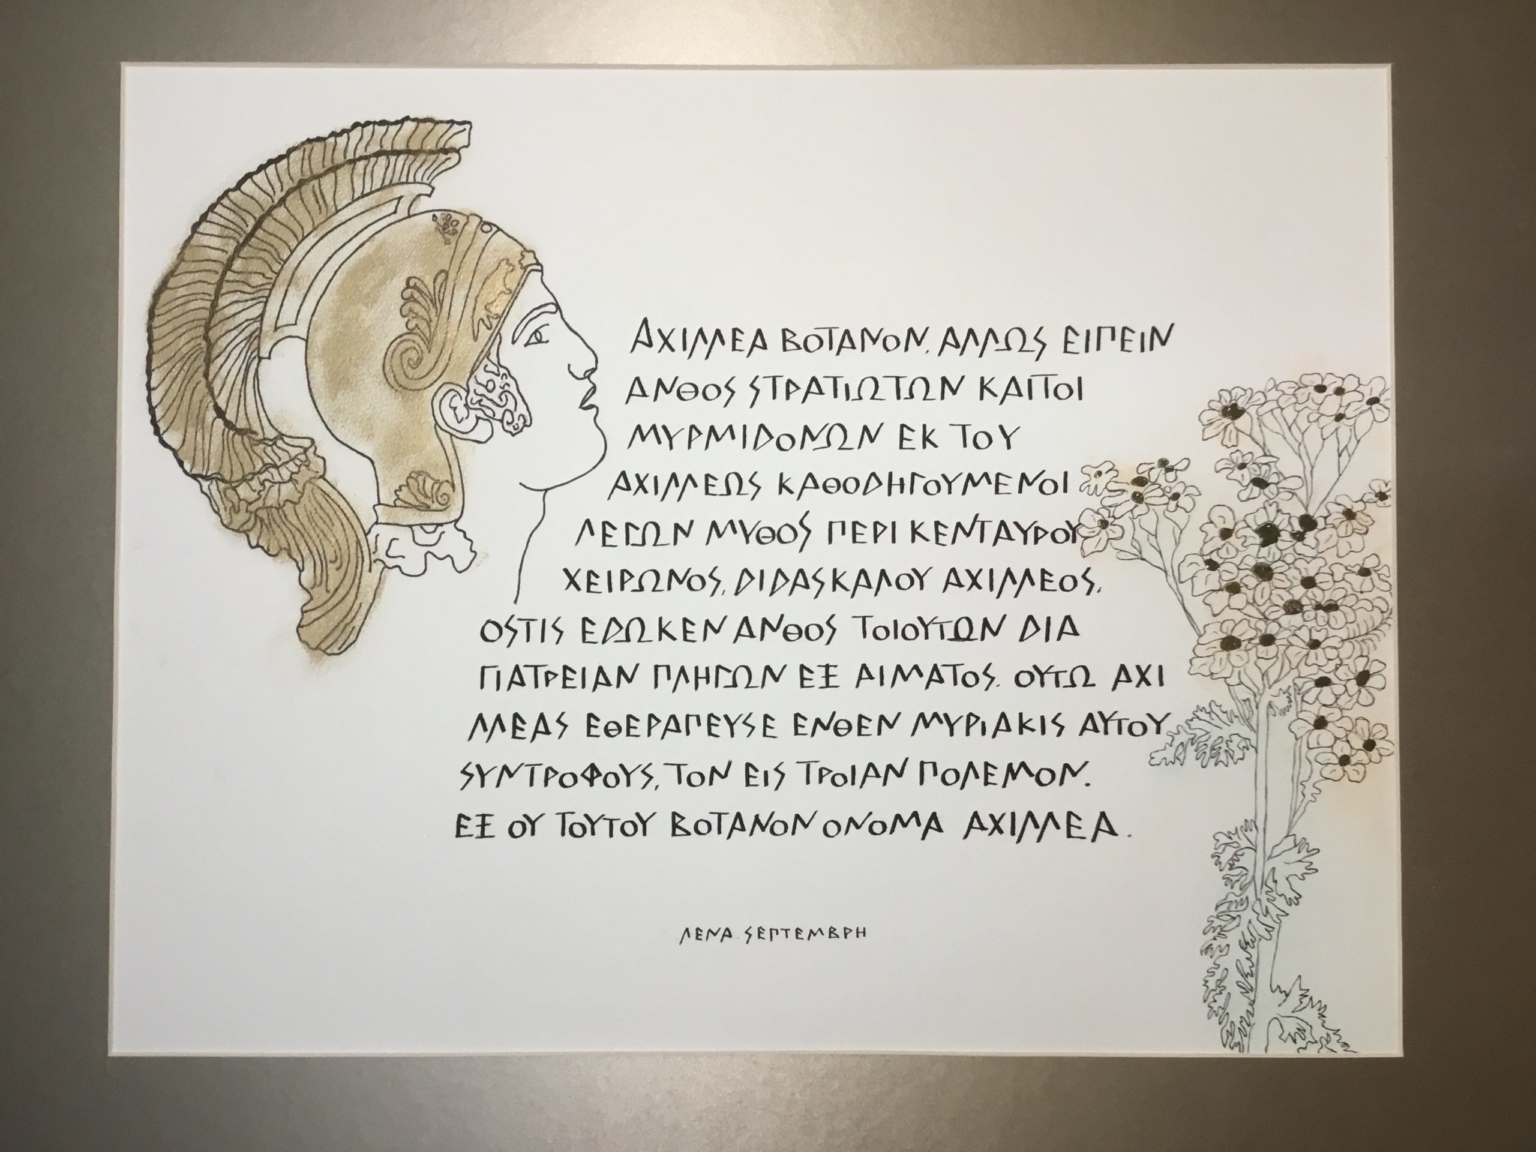 ΑΧΙΛΛΕΑ ΒΟΤΑΝΟΝ. ΑΛΛΩΣ ΕΙΠΕΙΝ
ΑΝΘΟΣ ΣΤΡΑΤΙΩΤΩΝ ΚΑΙΤΟΙ
ΜΥΡΜΙΔΟΝΩΝ ΕΚ ΤΟΥ
ΑΧΙΛΛΕΩΣ ΚΑΘΟΔΗΓΟΥΜΕΝΟΙ
ΛΕΓΩΝ ΜΥΘΟΣ ΠΕΡΙ ΚΕΝΤΑΥΡΟΥ
ΧΕΙΡΩΝΟΣ, ΔΙΔΑΣΚΑΛΟΥ ΑΧΙΛΛΕΟΣ,
ΟΣΤΙΣ ΕΔΩΚΕΝ ΑΝΘΟΣ ΤΟΙΟΥΤΩΝ ΔΙΑ
ΓΙΑΤΡΕΙΑΝ ΠΛΗΓΩΝ ΕΞ ΑΙΜΑΤΟΣ. ΟΥΤΩ ΑΧΙ
ΛΛΕΑΣ ΕΘΕΡΑΠΕΥΣΕ ΕΝΘΕΝ ΜΥΡΙΑΚΙΣ ΑΥΤΟΥ
ΣΥΝΤΡΟΦΟΥΣ, ΤΟΝ ΕΙΣ ΤΡΟΙΑΝ ΠΟΛΕΜΟΝ.
ΕΞ ΟΥ ΤΟΥΤΟΥ ΒΟΤΑΝΟΝ ΟΝΟΜΑ ΑΧΙΛΛΕΑ.
ΛΕΝΑ ΣΕΠΤΕΜΒΡΗ